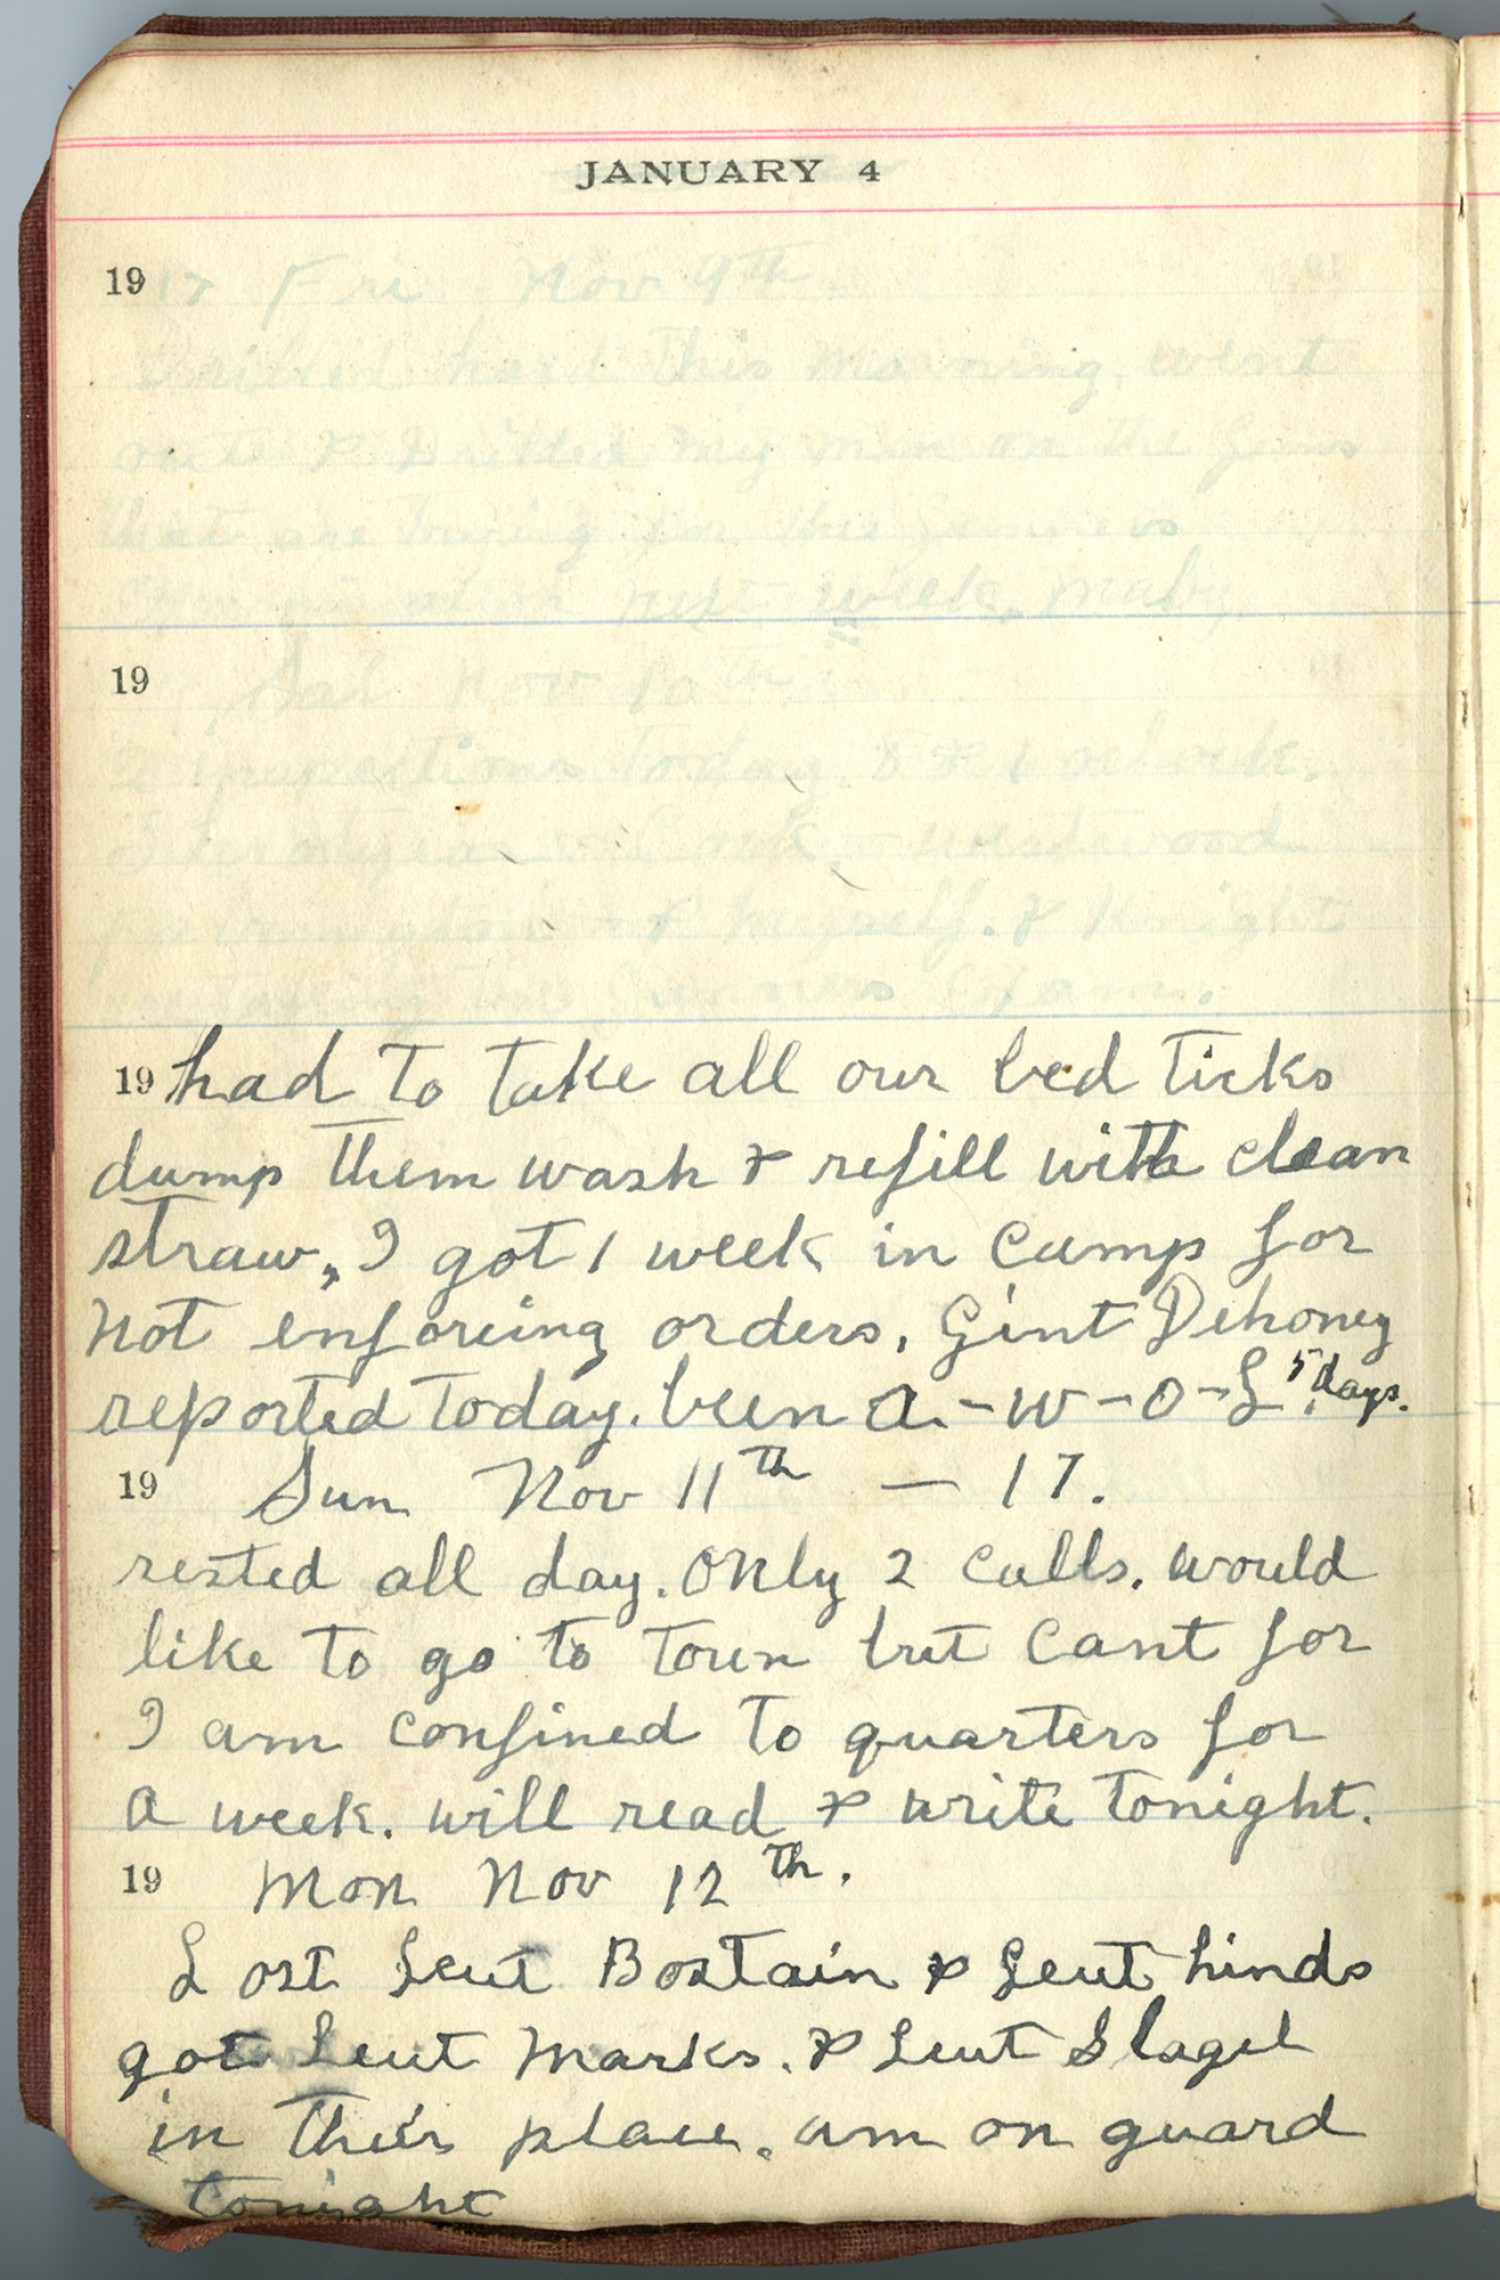 JANUARY 4
1917 Fri Nov 9th
drilled hard this morning, went
out & drilled my men on the guns
that are trying for the gunners
next week. maby
19 Sat Nov 10th
2 inspections today 8 & 1 oclock.
westwood
& myself. & Knight
taking the Gunners Exam.
19 had to take all our bed ticks
dump them wash & refill with clean
straw, I got 1 week in camp for
not enforcing orders, Gint Dehoney
reported today. been A.-W-O-L 5 days.
19 Sun Nov 11th — 17.
rested all day. only 2 calls. would
like to go to town but cant for
I am confined to quarters for
a week. will read & write tonight.
19 Mon Nov 12th.
Lost Leut Bostain & Leut hinds
got Leut Marks. & Leut Slagel
in their place. am on guard
tonight